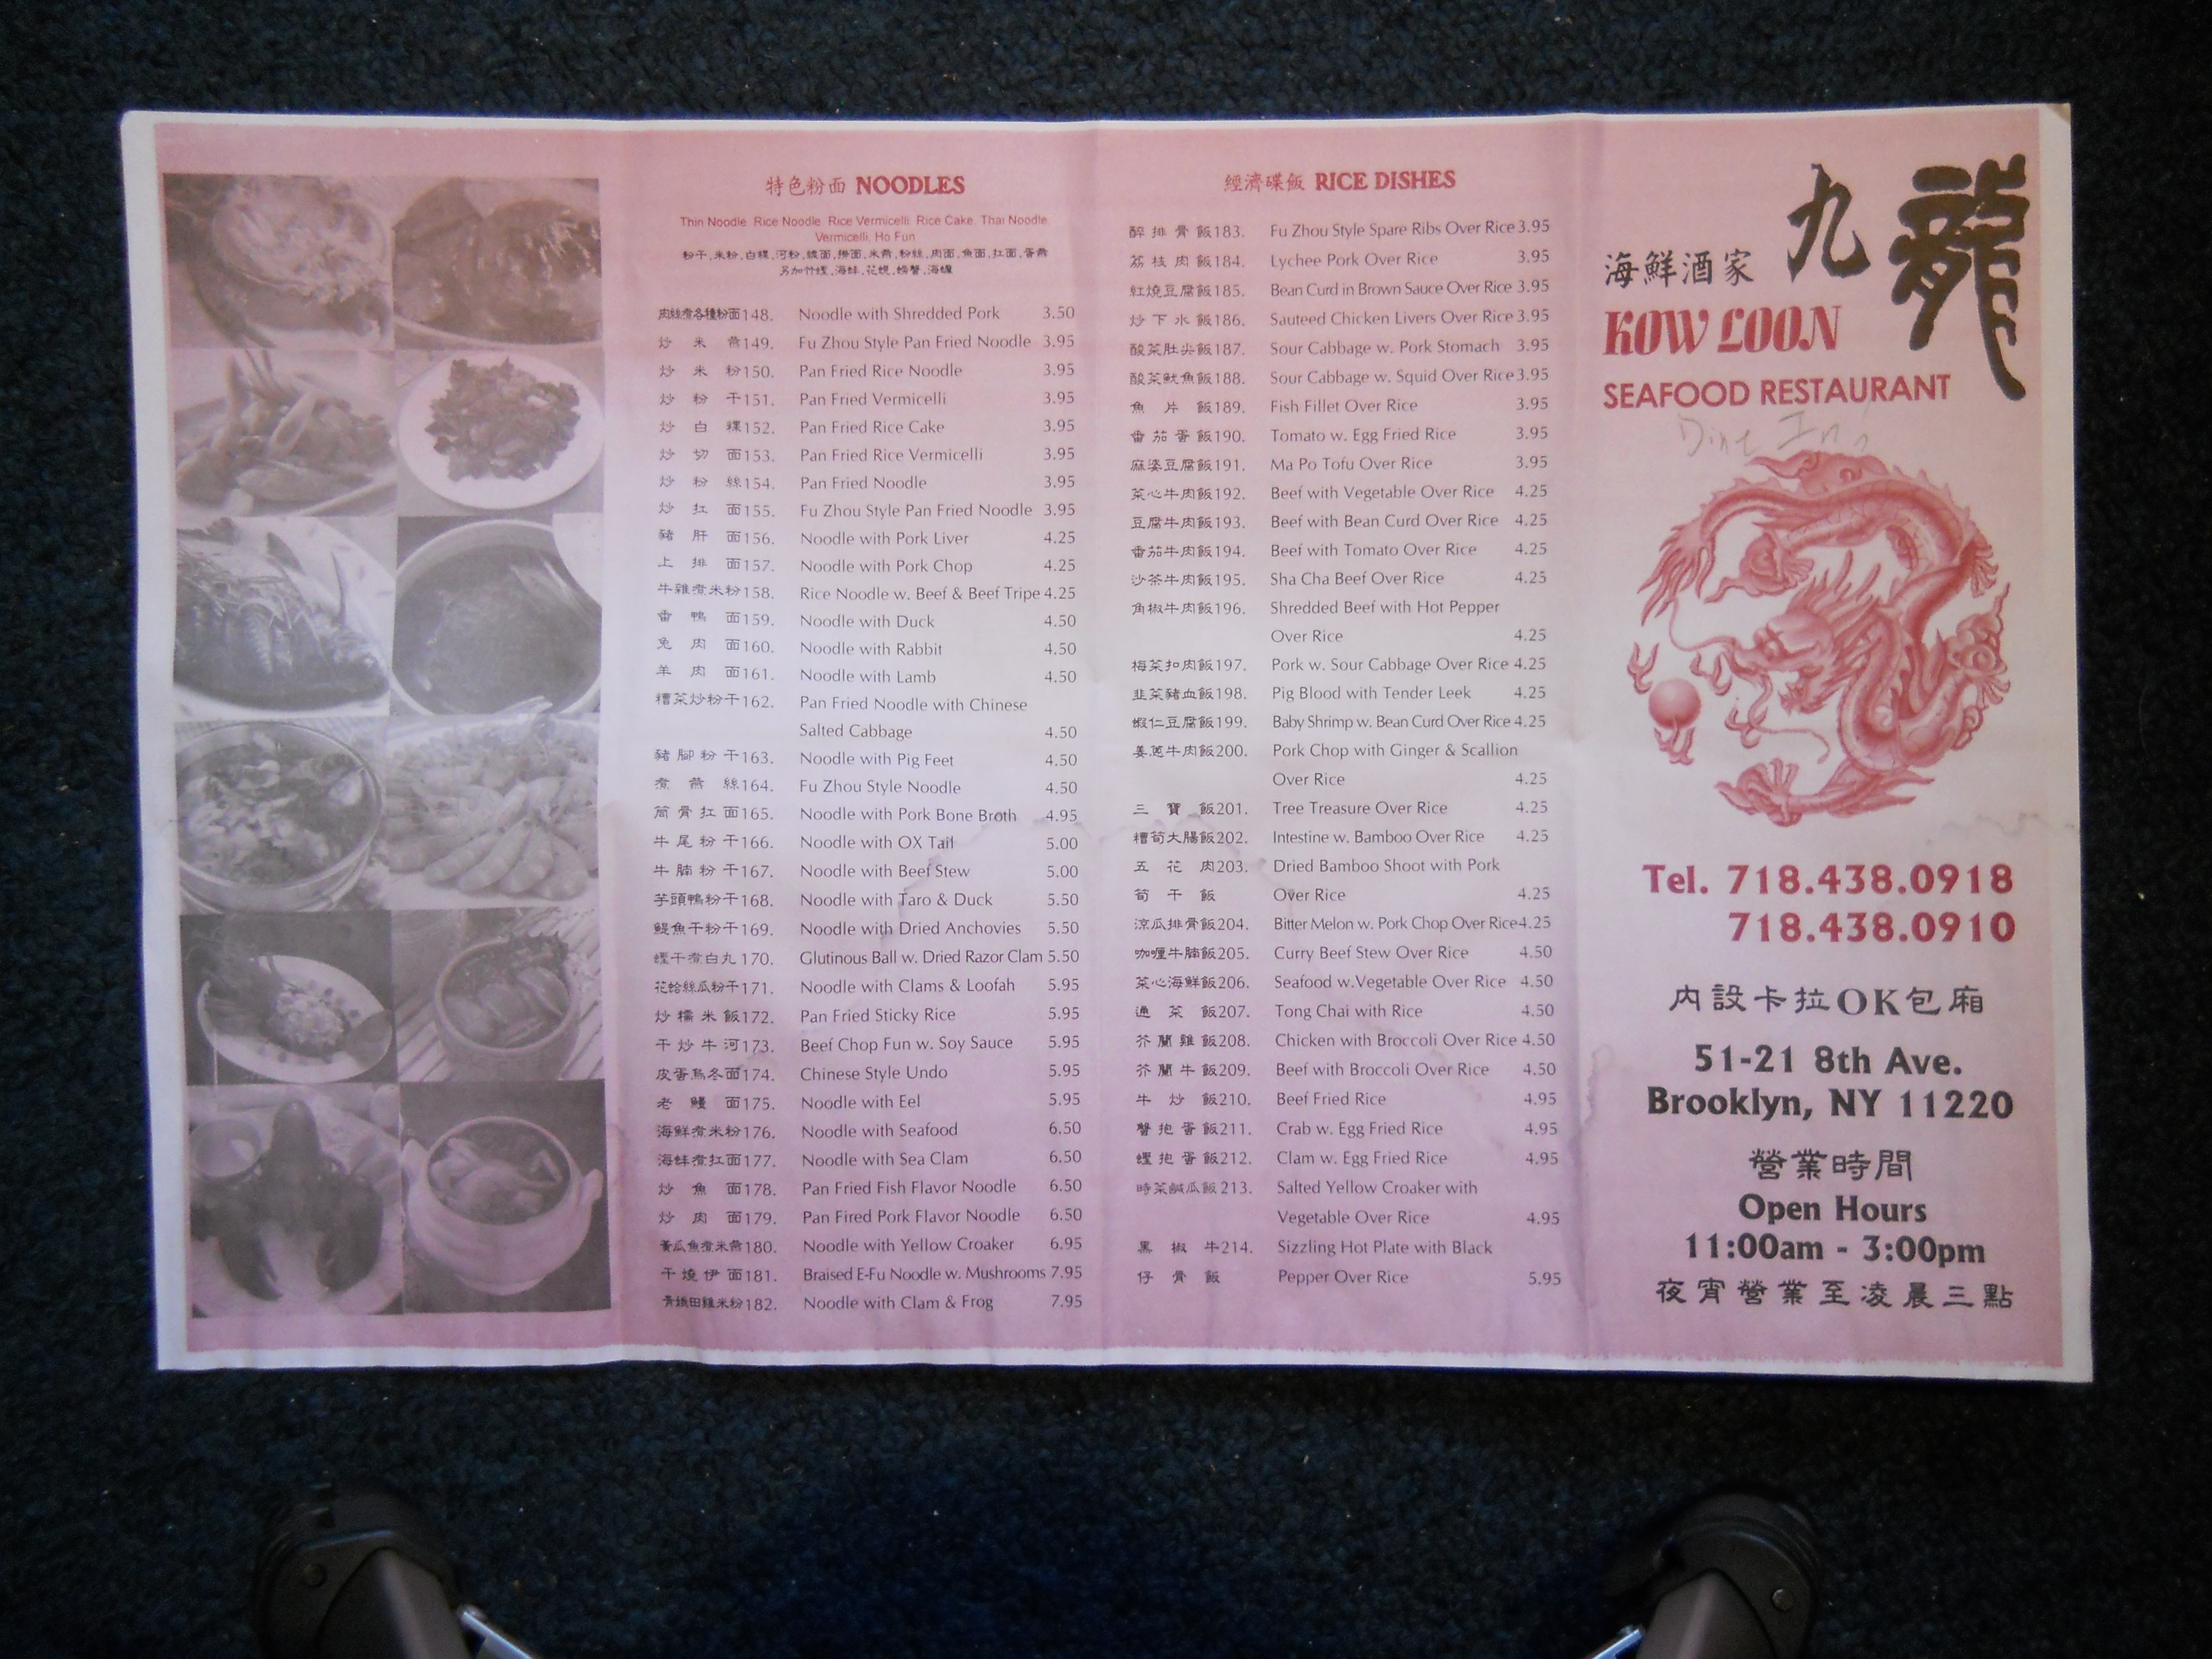 特色粉面 NOODLES
Thin Noodle, Rice Noodle, Rice Vermicelli, Rice Cake, Thai Noodle,
Vermicelli, Ho Fun
肉絲煮各種粉面148. Noodle with Shredded Pork 3.50
炒米燕149. Fu Zhou Style Pan Fried Noodle 3.95
炒米粉150. Pan Fried Rice Noodle 3.95
炒粉干151. Pan Fried Vermicelli 3.95
炒白粿152. Pan Fried Rice Cake 3.95
炒切面153. Pan Fried Rice Vermicelli 3.95
炒粉絲154. Pan Fried Noodle 3.95
炒扛面155. Fu Zhou Style Pan Fried Noodle 3.95
豬肝面156. Noodle with Pork Liver 4.25
上排面157. Noodle with Pork Chop 4.25
牛雜煮米粉158. Rice Noodle w. Beef & Beef Tripe 4.25
番鴨面159. Noodle with Duck 4.50
兔肉面160. Noodle with Rabbit 4.50
羊肉面161. Noodle with Lamb 4.50
糟菜炒粉干162. Pan Fried Noodle with Chinese
Salted Cabbage 4.50
豬腳粉干163. Noodle with Pig Feet 4.50
煮燕絲164. Fu Zhou Style Noodle 4.50
筒骨扛面165. Noodle with Pork Bone Broth 4.95
牛尾粉干166. Noodle with OX Tail 5.00
牛腩粉干167. Noodle with Beef Stew 5.00
芋頭鴨粉干168. Noodle with Taro & Duck 5.50
鯷魚干粉干169. Noodle with Dried Anchovies 5.50
蟶干煮白丸170. Glutinous Ball w. Dried Razor Clam 5.50
花蛤絲瓜粉干171. Noodle with Clams & Loofah 5.95
炒糯米飯172. Pan Fried Sticky Rice 5.95
干炒牛河173. Beef Chop Fun w. Soy Sauce 5.95
皮蛋烏冬面174. Chinese Style Undo 5.95
老鰻面175. Noodle with Eel 5.95
海鮮煮米粉176. Noodle with Seafood 6.50
海蚌煮扛面177. Noodle with Sea Clam 6.50
炒魚面178. Pan Fried Fish Flavor Noodle 6.50
炒肉面179. Pan Fired Pork Flavor Noodle 6.50
黃瓜魚煮米燕180. Noodle with Yellow Croaker 6.95
干燒伊面181. Braised E-Fu Noodle w. Mushrooms 7.95
182. Noodle with Clam & Frog 7.95
經濟碟飯 RICE DISHES
醉排骨飯183. Fu Zhou Style Spare Ribs Over Rice 3.95
荔枝肉飯184. Lychee Pork Over Rice 3.95
紅燒豆腐飯185. Bean Curd in Brown Sauce Over Rice 3.95
炒下水飯186. Sauteed Chicken Livers Over Rice 3.95
酸菜肚尖飯187. Sour Cabbage w. Pork Stomach 3.95
酸菜魷魚飯188. Sour Cabbage w. Squid Over Rice 3.95
魚片飯189. Fish Fillet Over Rice 3.95
番茄蛋飯190. Tomato w. Egg Fried Rice 3.95
麻婆豆腐飯191. Ma Po Tofu Over Rice 3.95
菜心牛肉飯192. Beef with Vegetable Over Rice 4.25
豆腐牛肉飯193. Beef with Bean Curd Over Rice 4.25
番茄牛肉飯194. Beef with Tomato Over Rice 4.25
沙茶牛肉飯195. Sha Cha Beef Over Rice 4.25
角椒牛肉飯196. Shredded Beef with Hot Pepper
Over Rice 4.25
梅菜扣肉飯197. Pork w. Sour Cabbage Over Rice 4.25
韭菜豬血飯198. Pig Blood with Tender Leek 4.25
蝦仁豆腐飯199. Baby Shrimp w. Bean Curd Over Rice 4.25
姜蔥牛肉飯200. Pork Chop with Ginger & Scallion
Over Rice 4.25
三寶飯201. Tree Treasure Over Rice 4.25
糟筍大腸飯202. Intestine w. Bamboo Over Rice 4.25
五花肉203. Dried Bamboo Shoot with Pork
筍干飯 Over Rice 4.25
涼瓜排骨飯204. Bitter Melon w. Pork Chop Over Rice 4.25
咖喱牛腩飯205. Curry Beef Stew Over Rice 4.50
菜心海鮮飯206. Seafood w.Vegetable Over Rice 4.50
通菜飯207. Tong Chai with Rice 4.50
芥蘭雞飯208. Chicken with Broccoli Over Rice 4.50
芥蘭牛飯209. Beef with Broccoli Over Rice 4.50
牛炒飯210. Beef Fried Rice 4.95
蟹抱蛋飯211. Crab w. Egg Fried Rice 4.95
蟶抱蛋飯212. Clam w. Egg Fried Rice 4.95
時菜鹹瓜飯213. Salted Yellow Croaker with
Vegetable Over Rice 4.95
黑椒牛214. Sizzling Hot Plate with Black
仔骨飯 Pepper Over Rice 5.95
九龍
海鮮酒家
KOW LOON
SEAFOOD RESTAURANT
Dine In
Tel. 718.438.0918
718.438.0910
內設卡拉OK包廂
51-21 8th Ave.
Brooklyn, NY 11220
營業時間
Open Hours
11:00am - 3:00pm
夜宵營業至凌晨三點